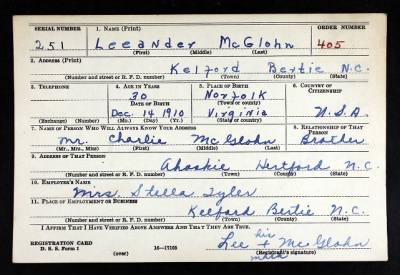 SERIAL NUMBER 1. NAME (Print) ORDER NUMBER
251 Leeander McGlohn 405
(First) (Middle) (Last)
2. ADDRESS (Print)
Kelford Bertie N.C.
(Number and street or R. F. D. number) (Town) (County) (State)
3. TELEPHONE 4. AGE IN YEARS 5. PLACE OF BIRTH 6. COUNTRY OF CITIZENSHIP
30 Norfolk
DATE OF BIRTH (Town or county)
Dec. 14 1910 Virginia U.S.A.
(Exchange) (Number) (Mo.) (Day) (Yr.) (State or country)
7. NAME OF PERSON WHO WILL ALWAYS KNOW YOUR ADDRESS 8. RELATIONSHIP OF THAT PERSON
Mr. Charlie McGlohn Brother
(Mr., Mrs., Miss) (First) (Middle) (Last)
9. ADDRESS OF THAT PERSON
Ahoskie Hertford N.C.
(Number and street or R. F. D. number) (Town) (County) (State)
10. EMPLOYER'S NAME
Mrs. Stella Tyler
11. PLACE OF EMPLOYMENT OR BUSINESS
Kelford Bertie N.C.
(Number and street or R. F. D. number) (Town) (County) (State)
I AFFIRM THAT I HAVE VERIFIED ABOVE ANSWERS AND THAT THEY ARE TRUE.
his
REGISTRATION CARD Lee + McGlohn
D. S. S. Form 1 (over) 16—17105 (Registrant's signature)
mark